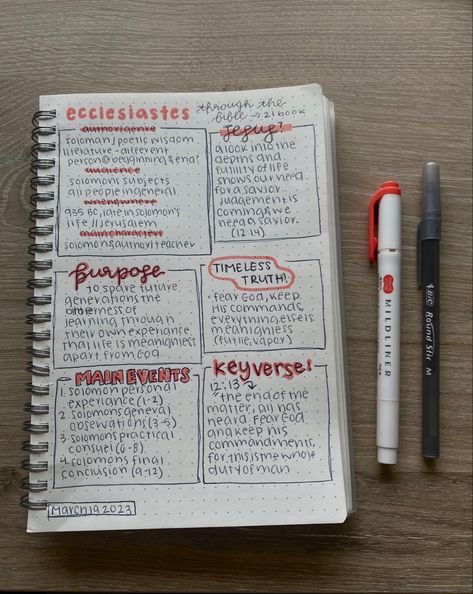 ecclesiastes
through the
bible → 21 book
author/genre
soloman/poetic wisdom
literature - different
person @ beginning & end?
audience
solomons subjects
all people in general
when/where
935 BC, late in solomon's
life // Jerusalem
main characters
solomon & author/teacher
Jesus?
a look into the
depths and
futility of life
shows our need
for a savior
judgement is
coming & we
need a savior.
(12:14)
purpose
to spare future
generations the
bitterness of
learning through
their own experiance
that life is meaningless
apart from GOD.
TIMELESS
TRUTH!
• fear God, keep
His commands,
everything else is
meaningless
(futile, vapor)
MAIN EVENTS
1. solomon personal
experiance (1-2)
2. solomons general
observations (3-5)
3. solomons practical
consuel (6-8)
4. solomons final
conclusion (9-12)
key verse!
12:13
"the end of the
matter; all has
heard. Fear God
and keep his
commandments,
for this is the whole
duty of man
March 19, 2023
MILDLINER
BIC Round Stic M